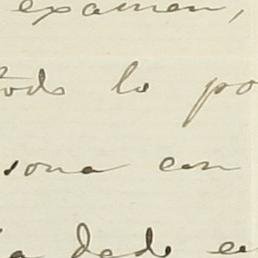 examen,
todo lo po
sona con
a dado e